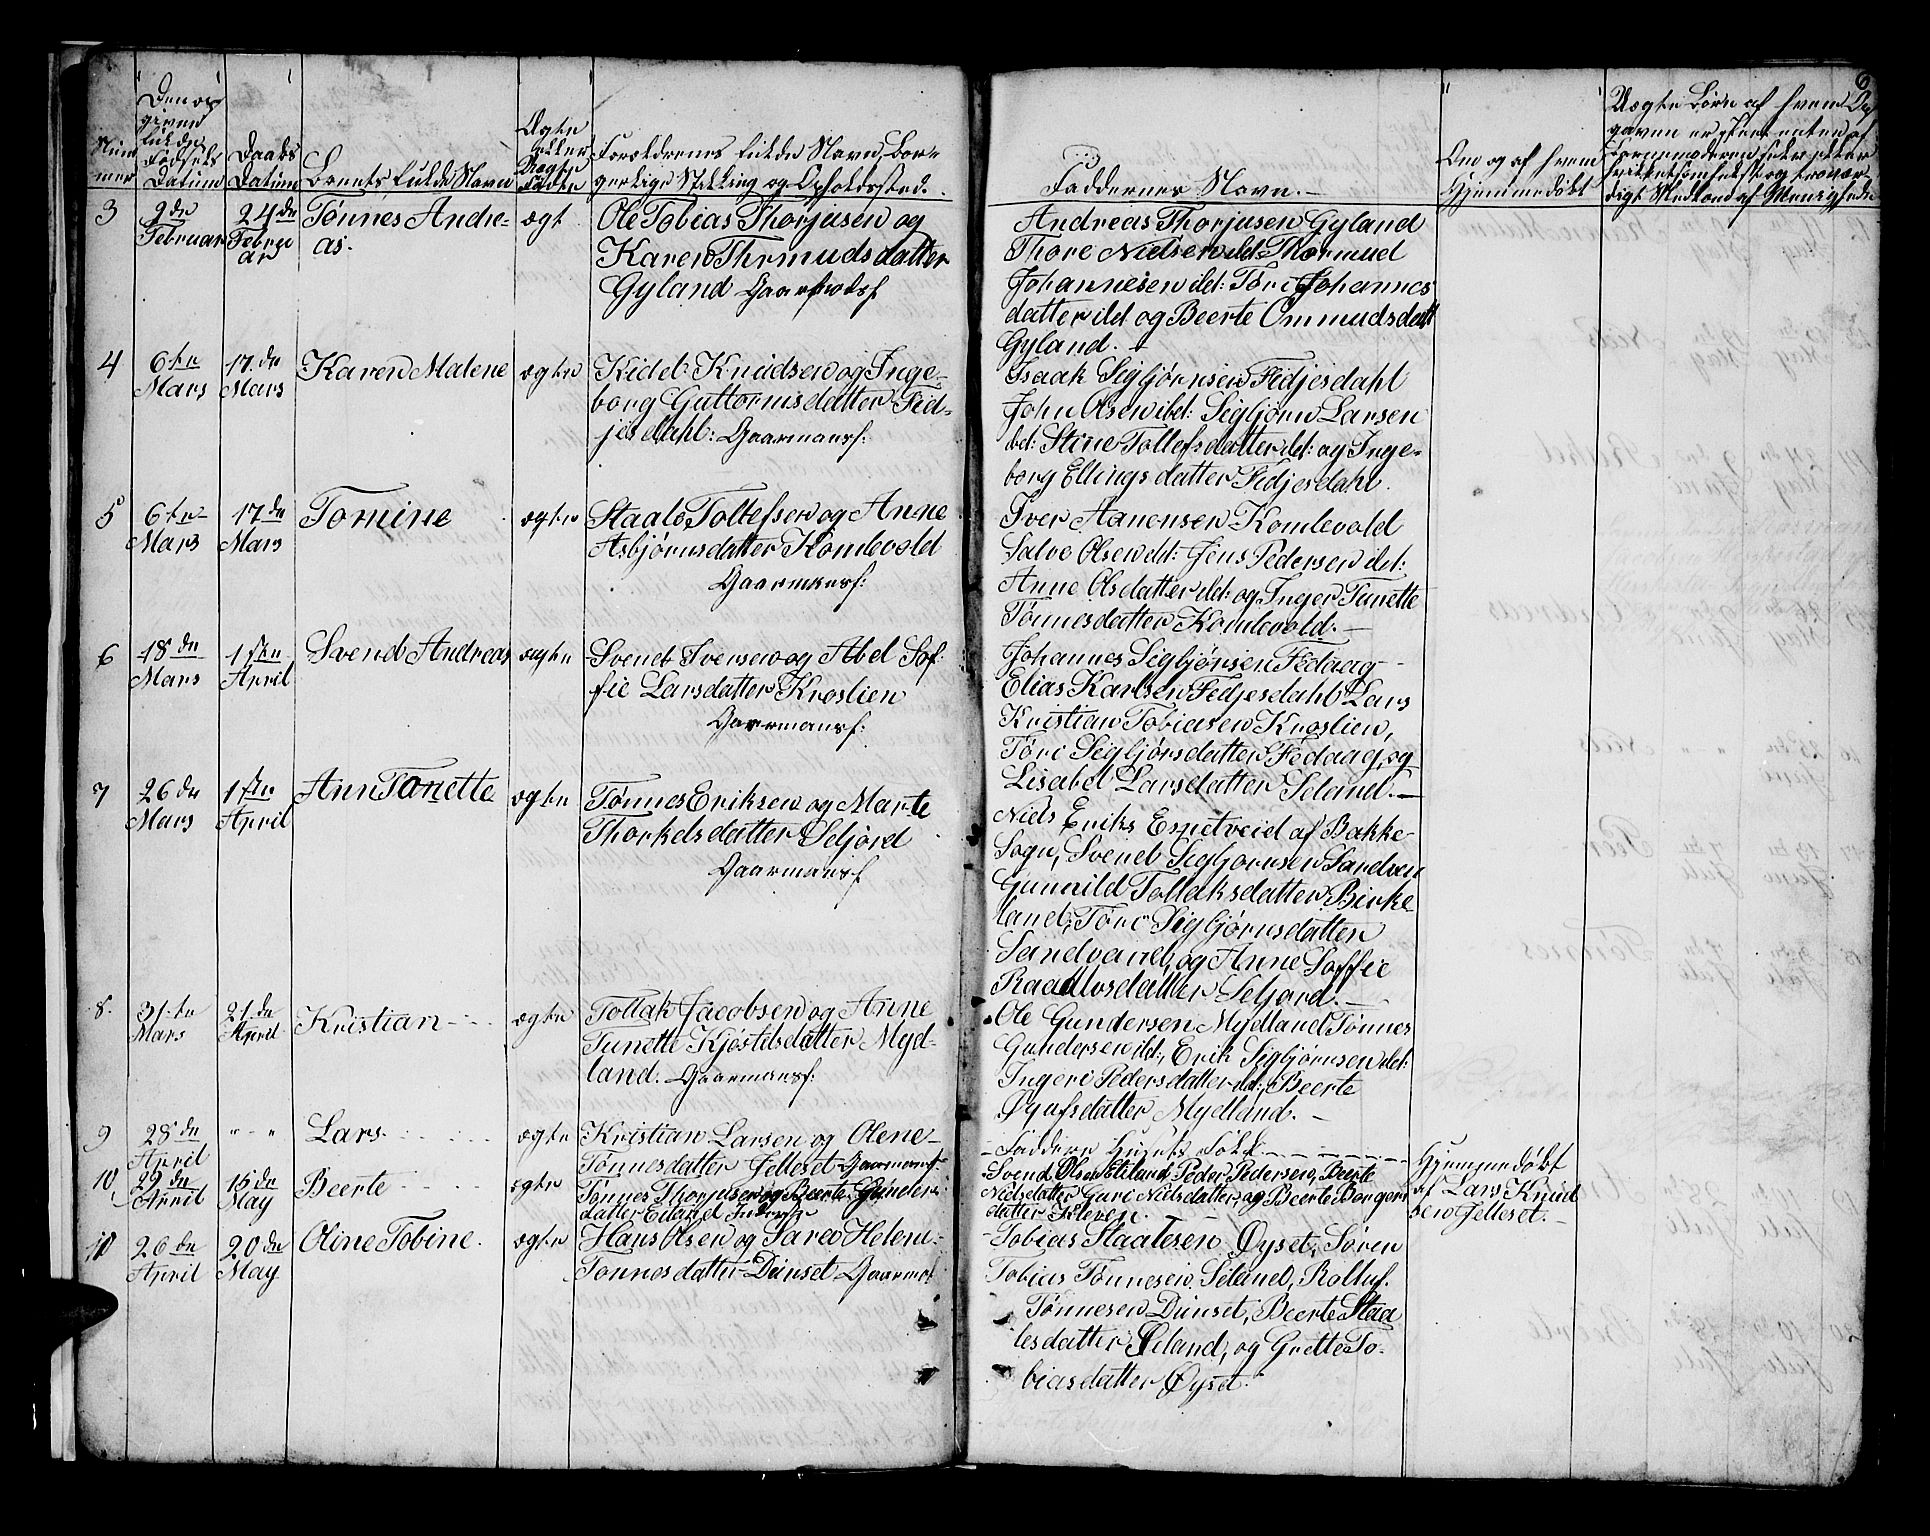 6
Num
mer
Den op
given
fulde
Fødsels
Datum
Daabs
Datum
Barnets fulde Navn
Ægte
eller
Uægte
Fødte
Forældrenes fulde Navn, Bor-
gerlige Stilling og Opholdssted.
Faddernes Navn.
Om og af hvem
Hjemmedøbt
Uægte Børn af hvem Op
gaven er skeet enten af
Barnemoderen selv eller
3
2dn
Februar
24dn
Februar
Tønnes Andre-
as.
ægt
Ole Tobias Thorjusen og
Karen Thrmudsdatter
Gyland Gaardmsf
Andreas Thorjusen Gyland
Thore Nielsen ild: Thormud
Johannesen ild: Tøri Johannes
datter ild og Beerte Ommudsdatt
Gyland.
4
6te
Mars
17.dn
Mars
Karen Malene
ægte
Kidel Knudsen og Inge-
borg Guttormsdatter Fid-
jesdahl: Gaarmansf:
Isaak Sigbjørnsen Fidjesdahl
John Olsen ibd: Sigbjørn Larsen
bd: Stine Tollefsdatter ild: og Inge-
borg Ellingsdatter Fidjesdahl.
5
6te
Mars
17dn
Mars
Tomine
ægte
Staale Tollefsen og Anne
Asbjørnsdatter Komlevold
Gaarmansf:
Iver Aanensen Komlevold
Salve Olsen ild: Jens Pedersen ild:
Anne Olsdatter ild: og Inger Tunette
Tønnesdatter Komlevold.
6
18dn
Mars
1ste
April
Svend Andreas
ægte
Svend Iversen og Abel Sof-
fie Larsdatter Kroslien
Gaarmansf:
Johannes Sigbjønsen Fedaag
Elias Karlsen Fidjesdahl Lars
Kristian Tobiasen Kroslien,
Tøri Sigbjørsdatter Fedaag, og
Lisabel Larsdatter Seland.
7
26dn
Mars
1ste
April
Ann Tonette
ægte
Tønnes Eriksen og Marte
Thorkelsdatter Seljord
Gaarmansf
Niels Eriks Espetveid af Bakke-
Sogn, Svend Sigbjornsen Sandven
Gunnild Tollaksdatter Birke-
land, Tøri Sigbjørnsdatter
Sandvand, og Anne Soffie
Raadlosdatter Seljord.
8.
31te
Mars
21dn
April
Kristian
ægte
Tollak Jacobsen og Anne
Tunette Kjøstelsdatter Myd-
land. Gaarmansf:
Ole Gundersen Mydland Tønnes
Gundersen ild:, Erik Sigbjørnsen ild:
Ingeri Pedersdatter ild:, Beerte
Øyufsdatter Mydland.
9
28dn
April
" "
Lars.
ægte
Kristian Larsen og Olene
Tønnesdatter Jelleset Gaarmansf.
Faddere Husets Folk
Hjemmedøbt
af Lars Knud
sen Jelleset.
10
29dn
April
15dn
May
Beerte
ægte
Tønnes Thorjusen og Beerte Gunders
datter Eiland
Svend Olsen Eiland, Peder Pedersen, Beerte
Nielsdatter Guri Nielsdatter, og Beerte Borgers
datter Kleven.
11
26de
April
20dn
May
Oline Tobine.
ægte
Hans Olsen og Sarea Helene
Tonnesdatter Dunset Gaarm
Tobias Staalesen Øyset, Søren
Tobias Tønnesen Seland, Rolluf
Tønnesen Dunset, Beerte Staa
lesdatter Øiland, og Grette To-
biasdatter Øyset.